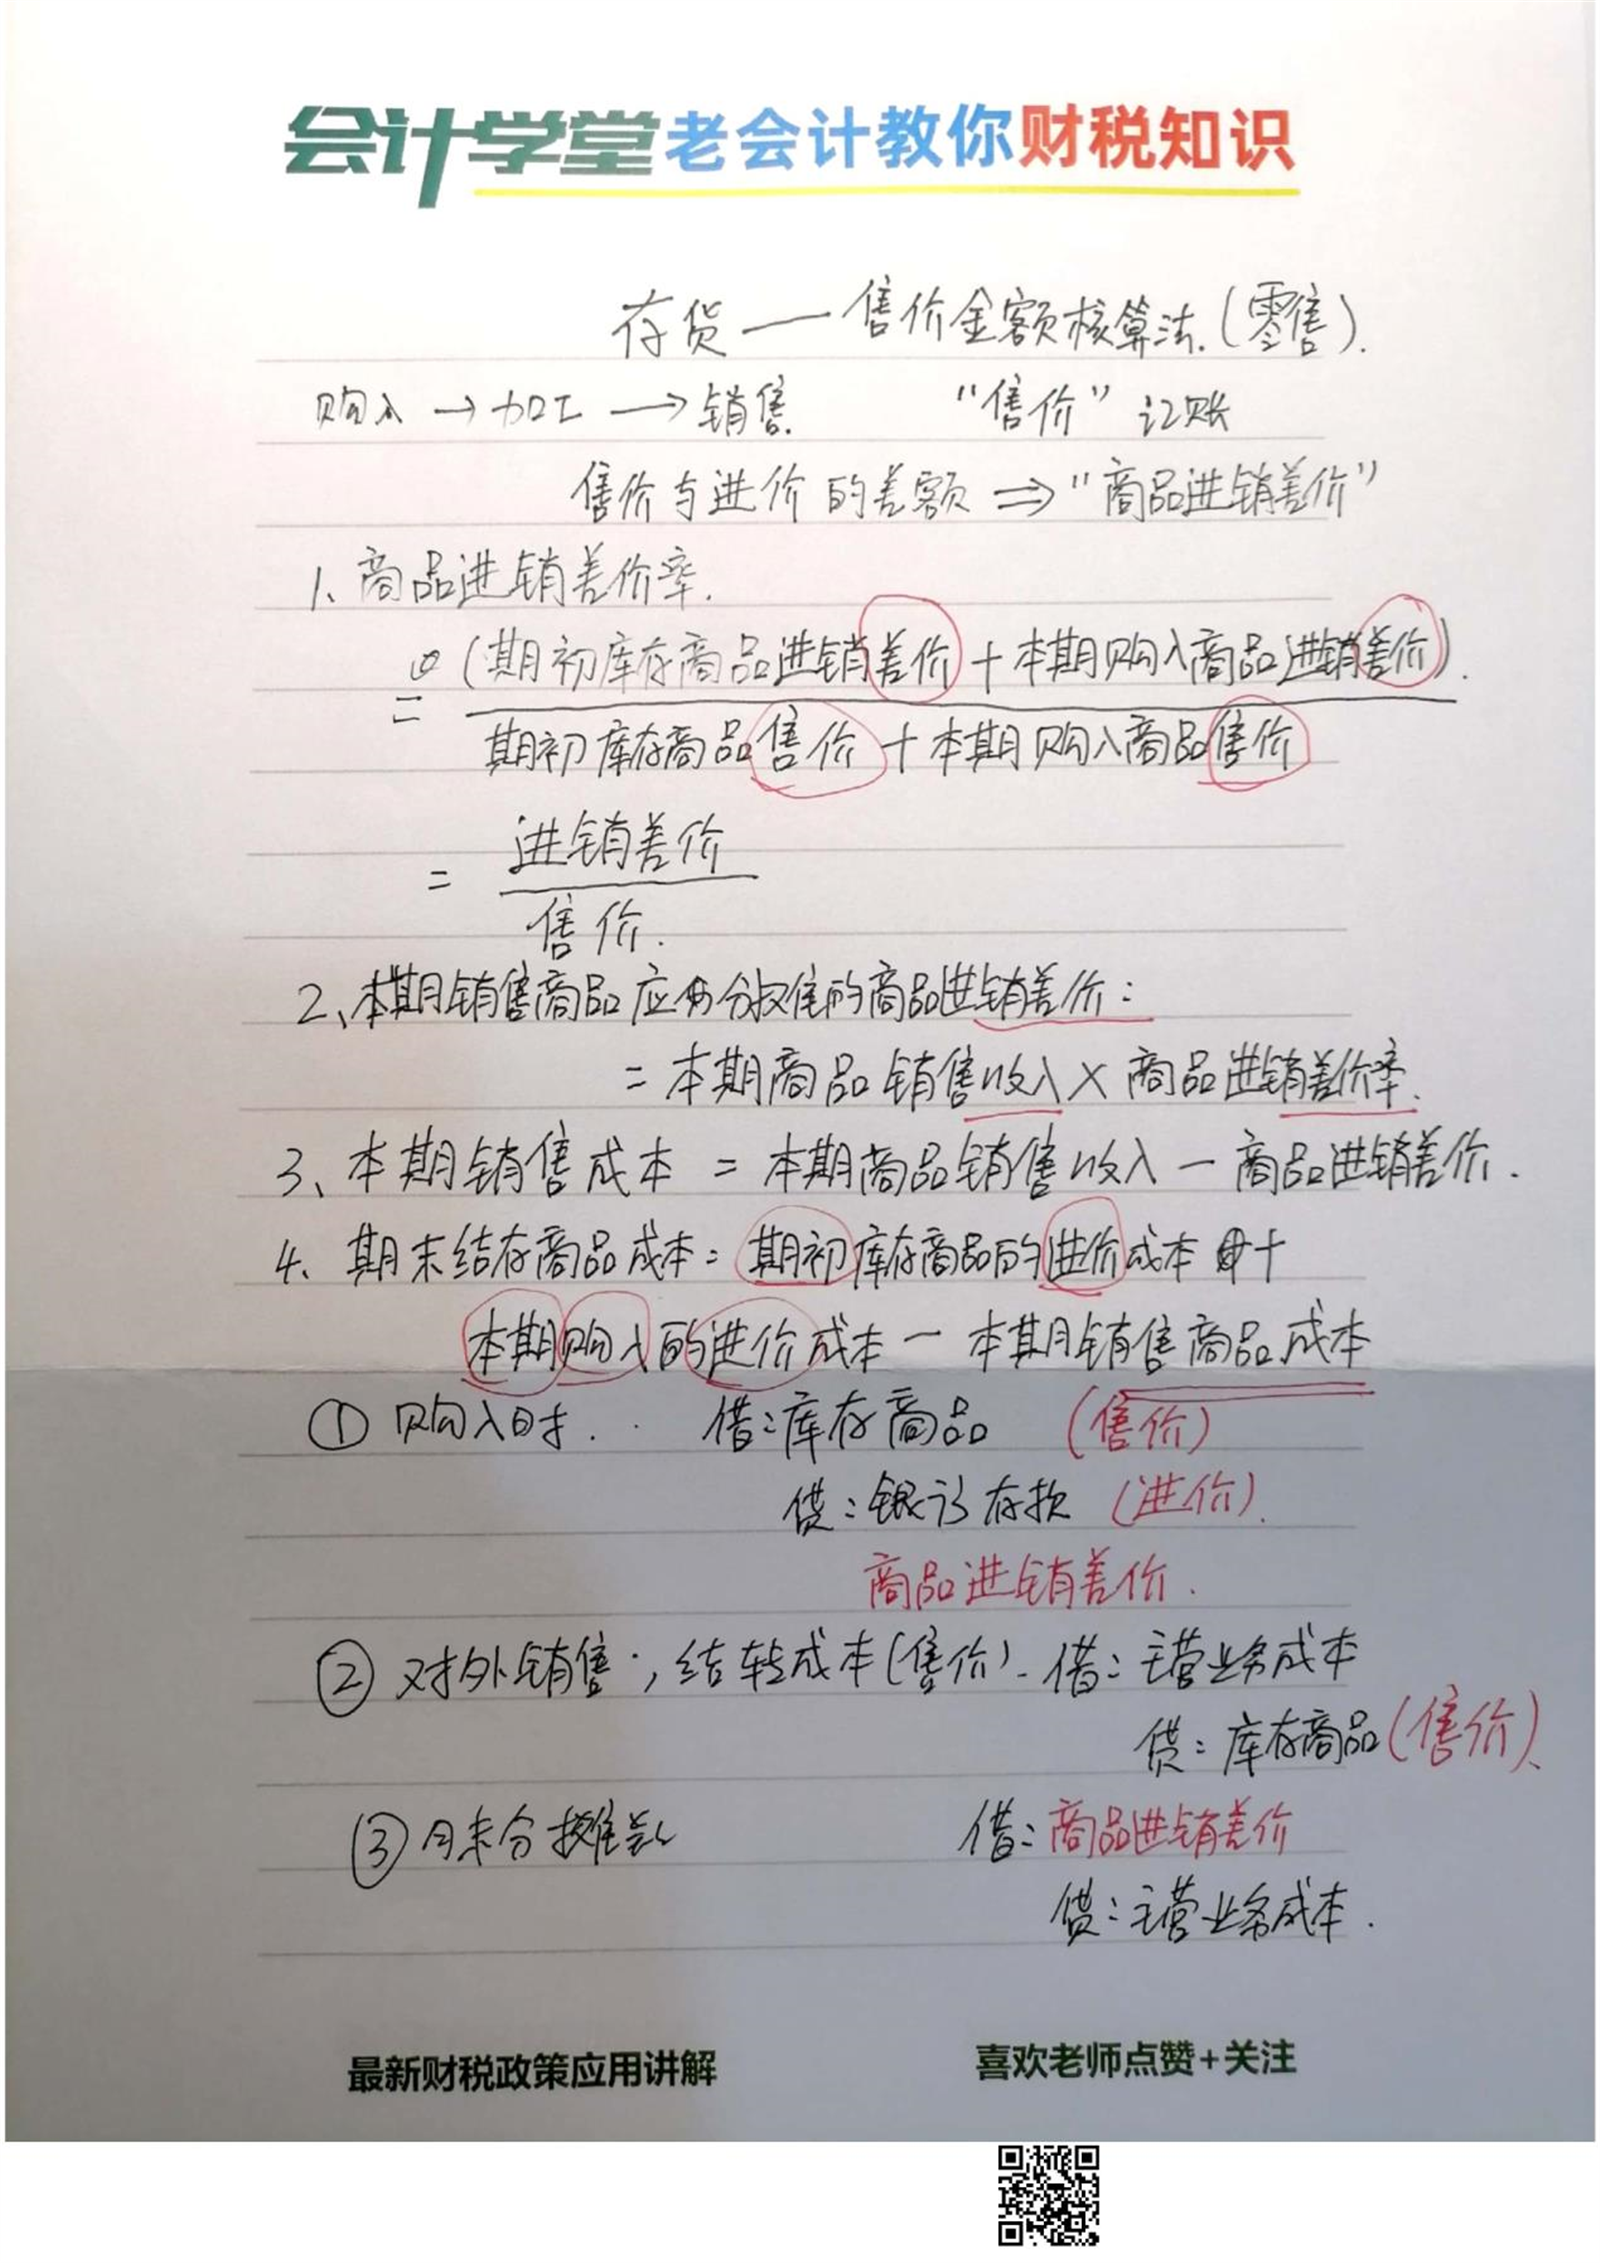 会计学堂老会计教你财税知识
存货——售价金额核算法.(零售).
购入→加工→销售. “售价”记账
售价与进价的差额⇒“商品进销差价”
1、商品进销差价率.
(期初库存商品进销差价+本期购入商品进销差价).
=
期初库存商品售价+本期购入商品售价
进销差价
=
售价.
2、本期销售商品应分摊的商品进销差价:
=本期商品销售收入×商品进销差价率.
3、本期销售成本=本期商品销售收入-商品进销差价.
4、期末结存商品成本=期初库存商品的进价成本+
本期购入的进价成本-本期销售商品成本
①购入时.. 借:库存商品 (售价)
贷:银行存款 (进价).
商品进销差价.
②对外销售,结转成本(售价).借:主营业务成本
贷:库存商品(售价).
③月末分摊差 借:商品进销差价
贷:主营业务成本.
最新财税政策应用讲解 喜欢老师点赞+关注